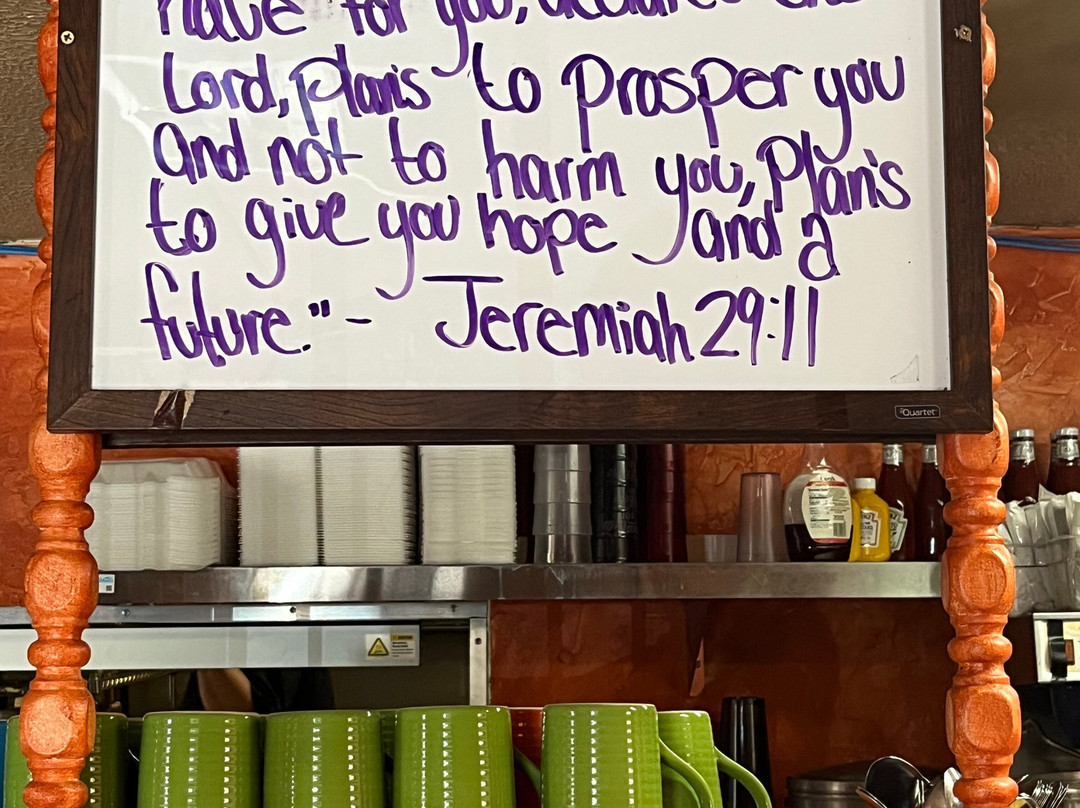 have for you, declares the
Lord, plans to prosper you
and not to harm you, plans
to give you hope and a
future." - Jeremiah 29:11
Quartet